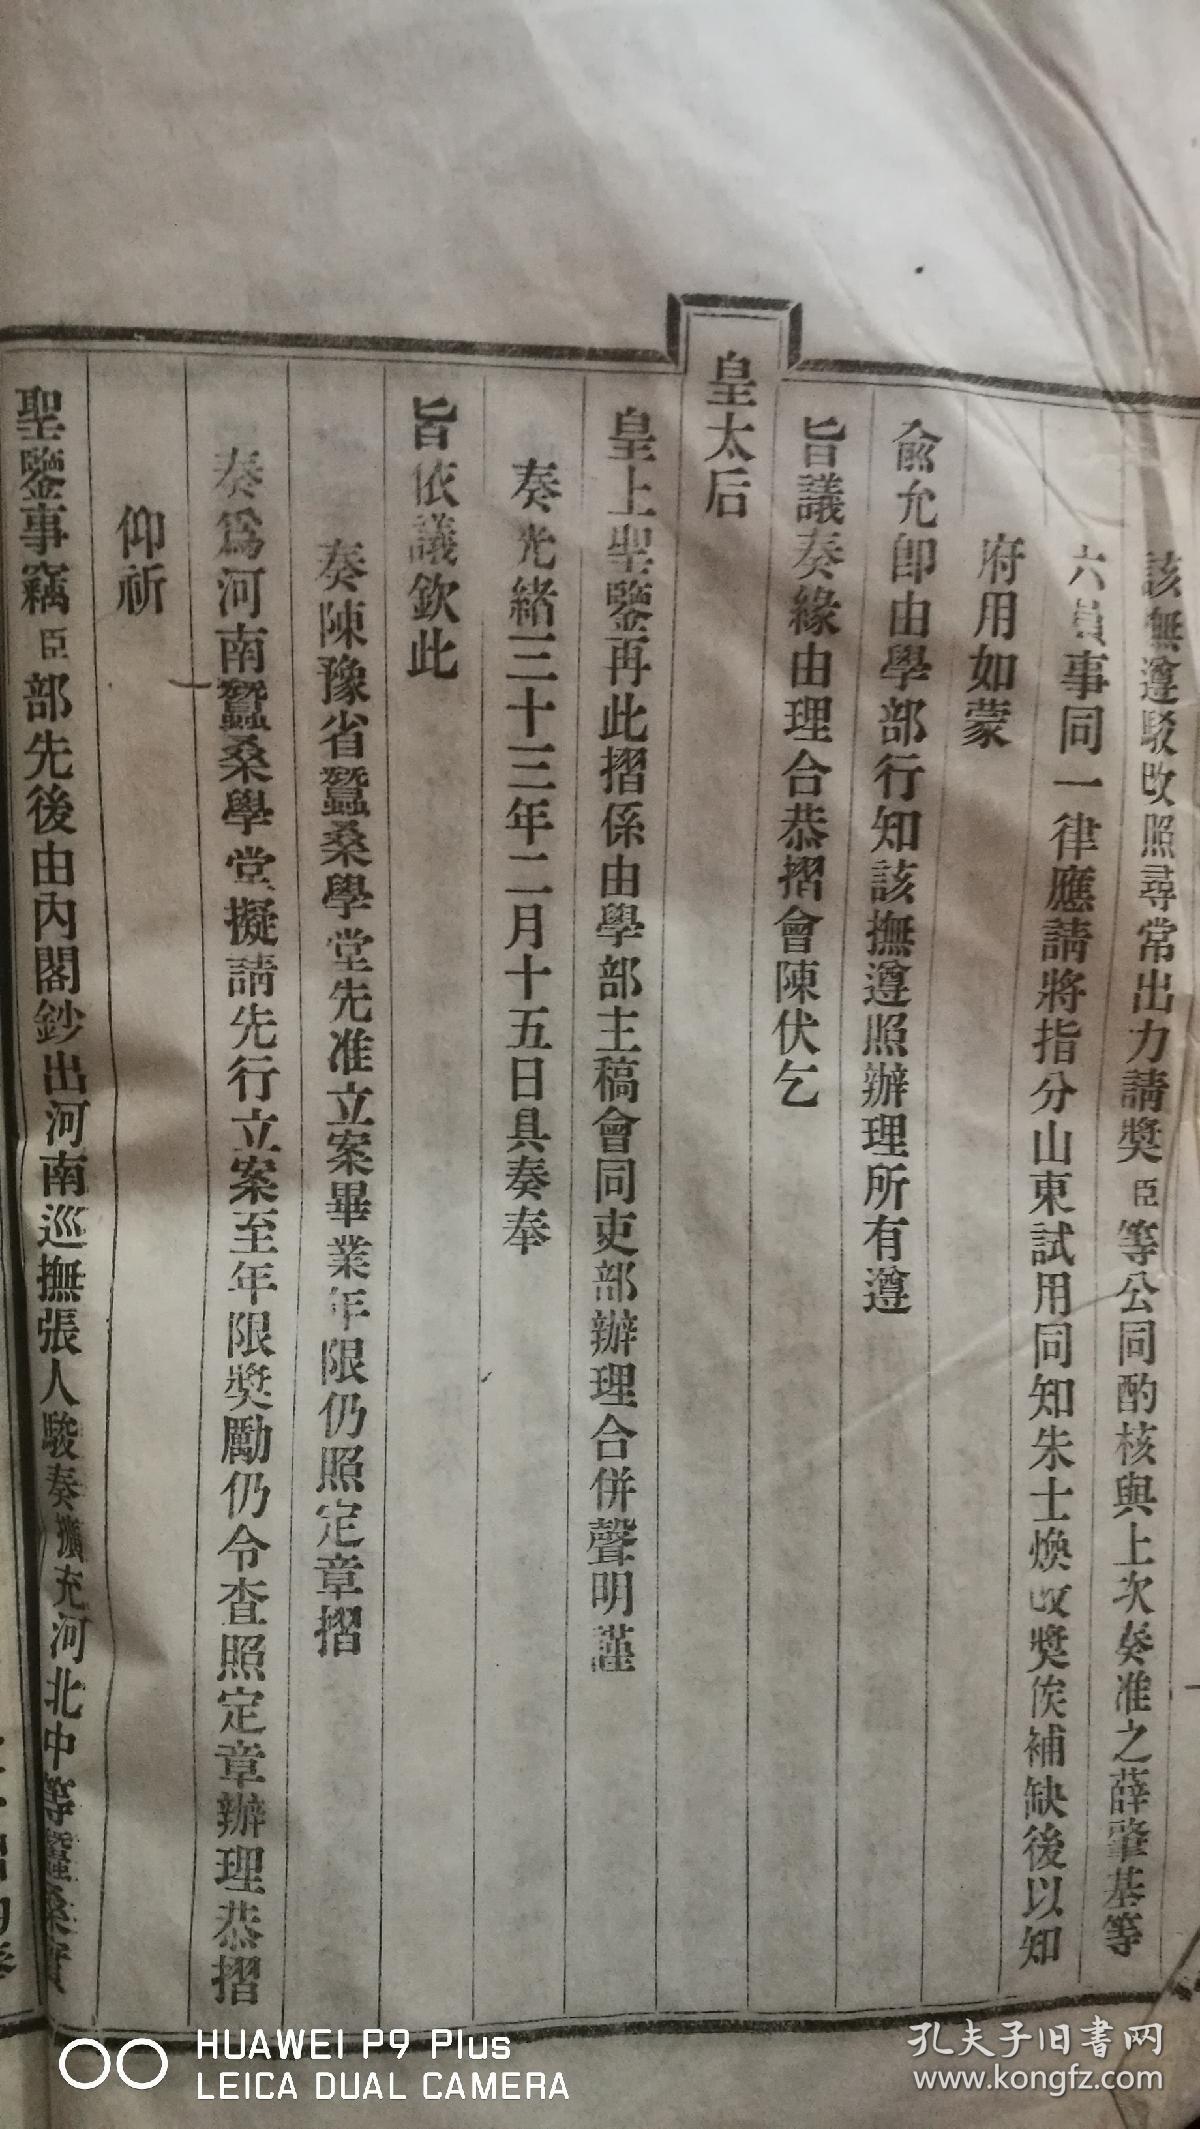 該撫遵駁改照尋常出力請獎臣等公同酌核與上次奏准之薛肇基等
六員事同一律應請將指分山東試用同知朱士煥改獎俟補缺後以知
府用如蒙
俞允即由學部行知該撫遵照辦理所有遵
旨議奏緣由理合恭摺會陳伏乞
皇太后
皇上聖鑒再此摺係由學部主稿會同吏部辦理合併聲明謹
奏光緒三十三年二月十五日具奏奉
旨依議欽此
奏陳豫省蠶桑學堂先准立案畢業年限仍照定章摺
奏爲河南蠶桑學堂擬請先行立案至年限獎勵仍令查照定章辦理恭摺
仰祈
聖鑒事竊臣部先後由內閣鈔出河南巡撫張人駿奏擴充河北中等蠶桑實
HUAWEI P9 Plus
LEICA DUAL CAMERA
孔夫子旧書网
www.kongfz.com